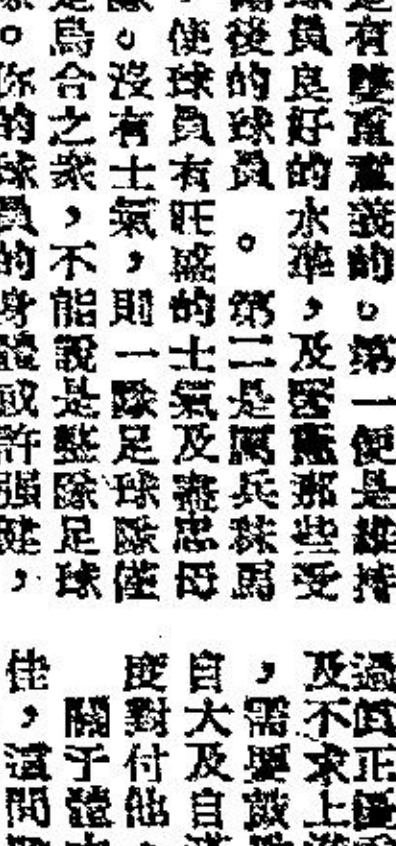 有雙重意義的。第一便是維持
員良好的水準,及醫療那些受
後的球員。第二是閱兵秣馬
使球員有旺盛的士氣及盡忠母
。沒有士氣,則一隊足球隊僅
烏合之衆,不能說是整隊足球
。你的球員的身體或許强健,
過低正
及不求上
,需要鼓
自大及自
度對付他
關于體
佳,這問